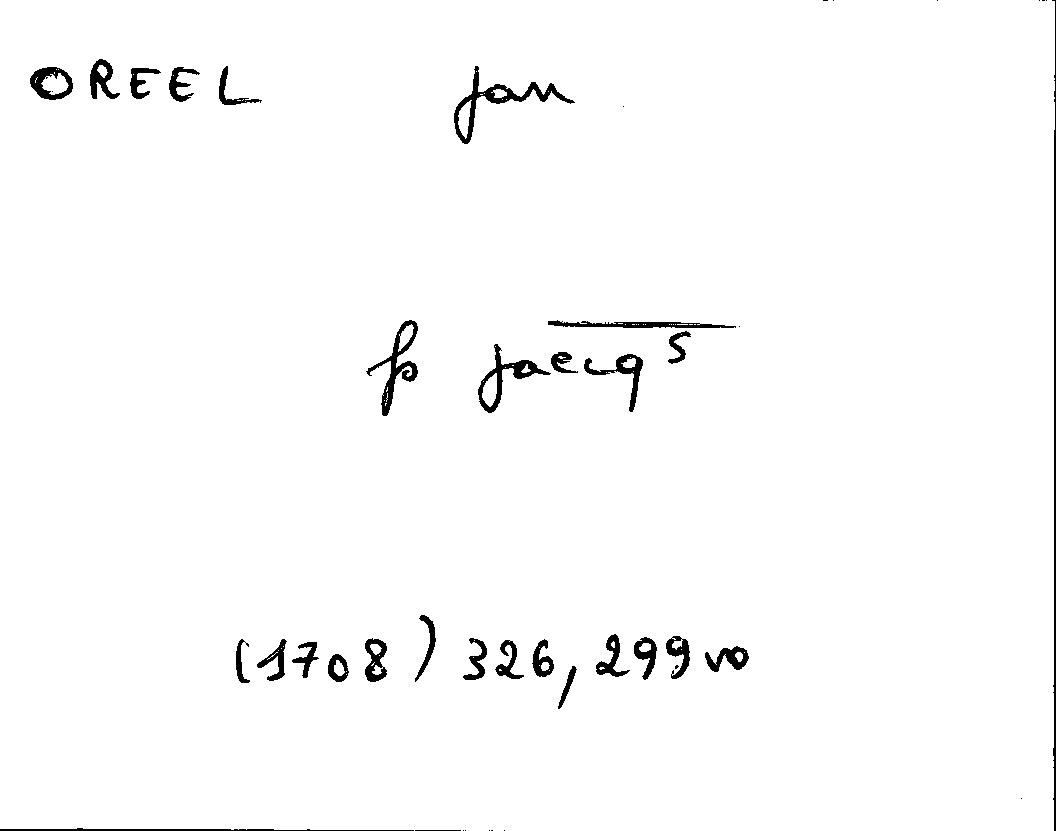 OREEL Jan
fs Jaecqs
(1708) 326, 299 vo